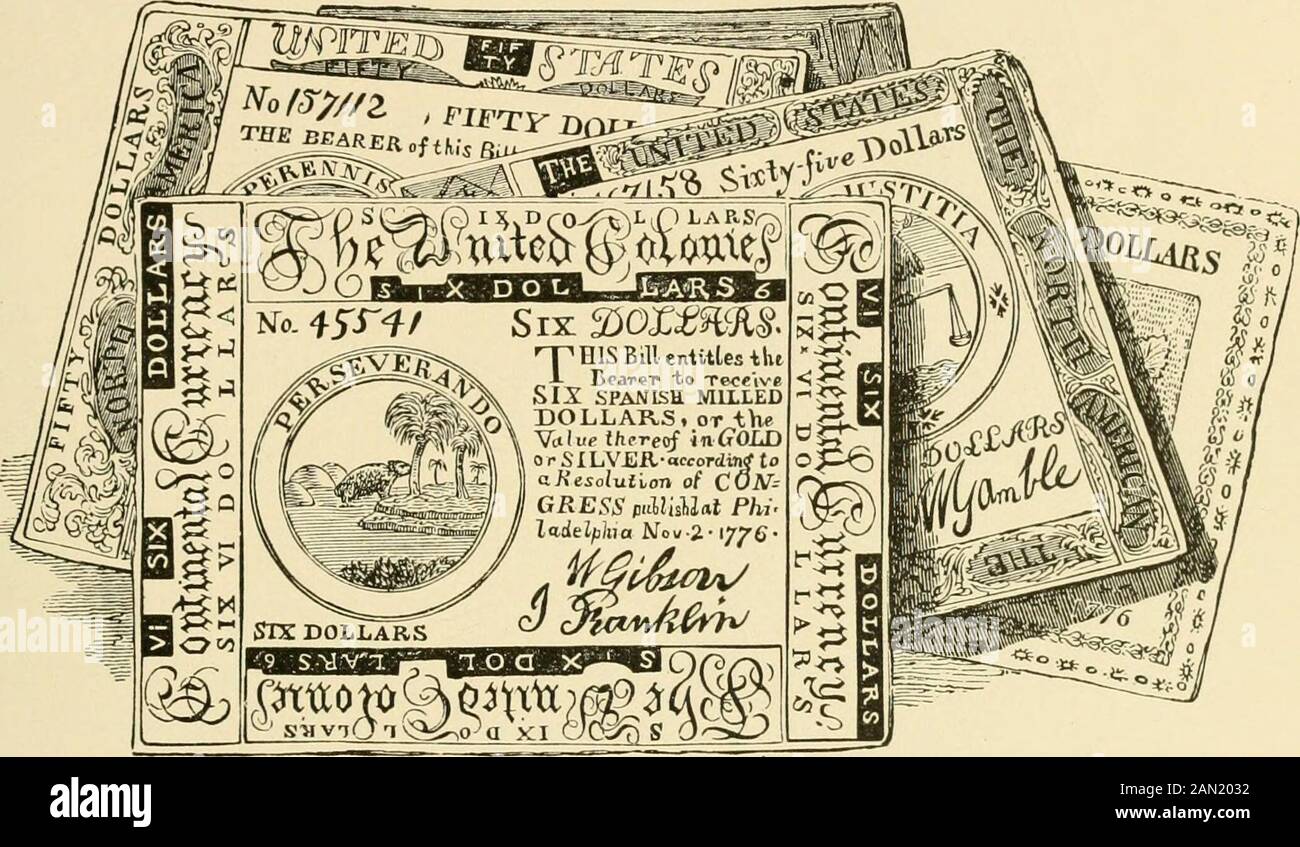 UNITED FIFTY STATES
FIFTY DOLLARS
No 157112 , FIFTY
THE BEARER of this
PERENNIS
FIFTY DOLLARS
NORTH AMERICA
THE UNITED STATES
7158 Sixty-five Dollars
JUSTITIA
DOLLARS
WGamble
THE NORTH AMERICAN
THE
DOLLARS
76
S IX D O L LARS
The United Colonies
SIX DOLLARS 6
No. 45541 SIX DOLLARS.
THIS Bill entitles the
Bearer to receive
SIX SPANISH MILLED
DOLLARS, or the
Value thereof in GOLD
or SILVER according to
a Resolution of CON=
GRESS publishd at Phi-
ladelphia Nov. 2. 1776.
WGibson
J Franklin
PERSEVERANDO
SIX DOLLARS
VI SIX DOLLARS
Continental Currency
SIX VI DOLLARS
SIX VI DOLLARS
Continental Currency
VI SIX DOLLARS
SIX DOLLARS 6
The United Colonies
SIX DOLLARS
alamy
Image ID: 2AN2032
www.alamy.com